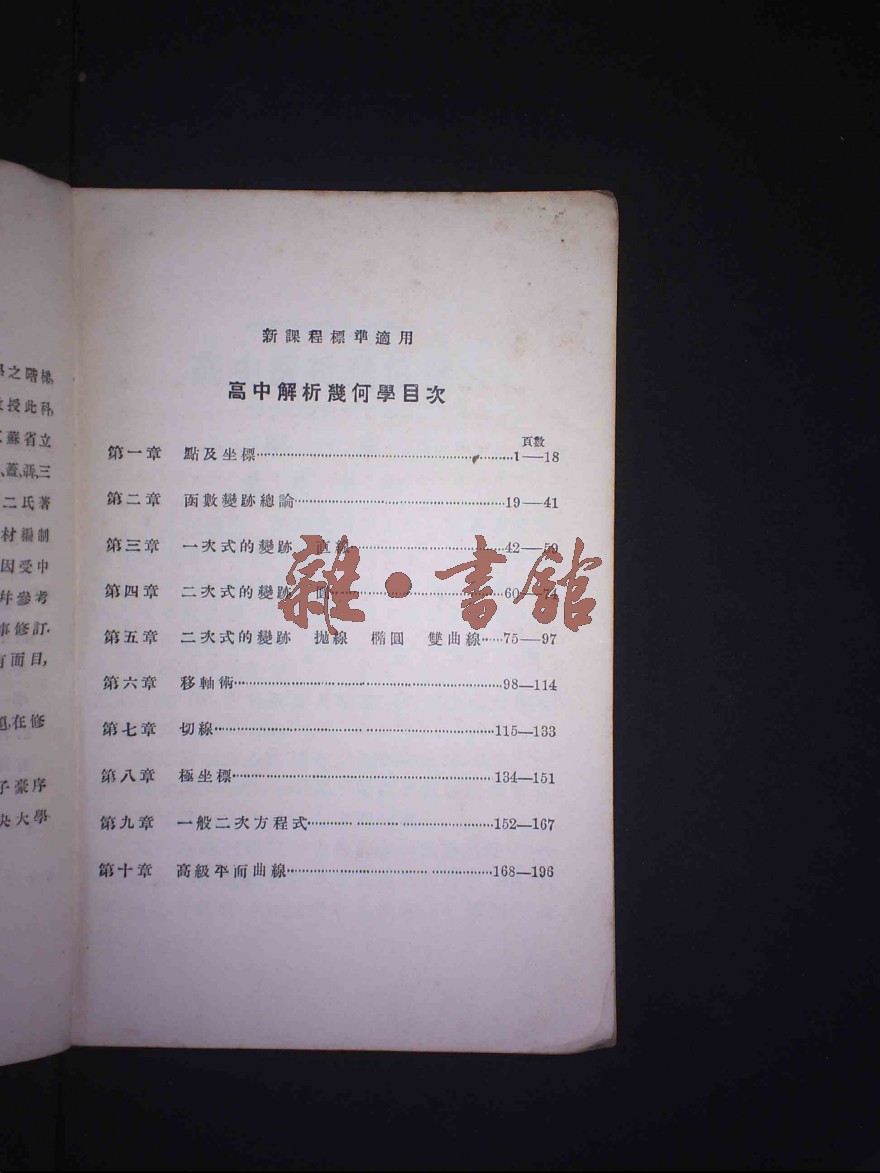 學之階梯,
教授此科,
蘇省立
蓋,蓐,三
二氏著
材編制
因受中
幷參考
事修訂.
有面目,
在修
子豪序
央大學
新課程標準適用
高中解析幾何學目次
頁數
第一章 點及坐標 1—18
第二章 函數變跡總論 19—41
第三章 一次式的變跡 直線 42—59
第四章 二次式的變跡 圓 60—74
第五章 二次式的變跡 拋線 橢圓 雙曲線 75—97
第六章 移軸術 98—114
第七章 切線 115—133
第八章 極坐標 134—151
第九章 一般二次方程式 152—167
第十章 高級平面曲線 168—196
雜·書館